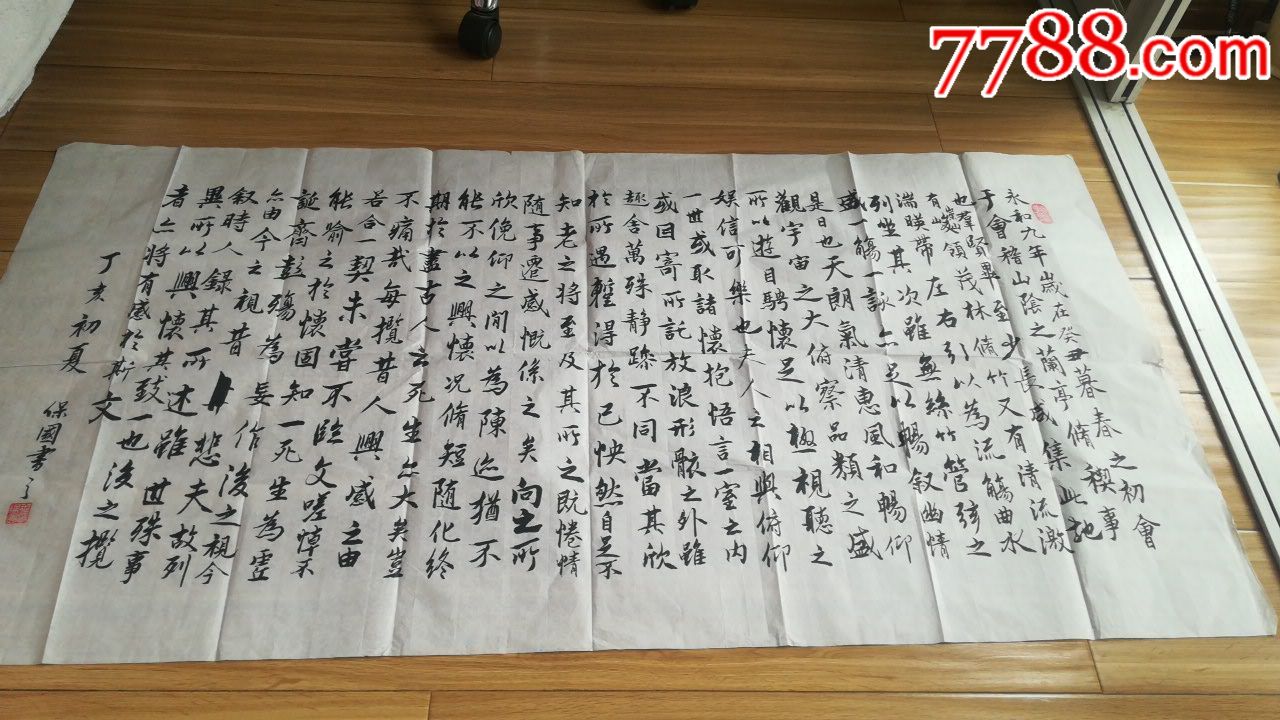 7788.com
永和九年歲在癸丑暮春之初會
于會稽山陰之蘭亭脩稧事
也羣賢畢至少長咸集此地
有峻領茂林脩竹又有清流激
湍暎帶左右引以為流觴曲水
列坐其次雖無絲竹管弦之
盛一觴一詠亦足以暢叙幽情
是日也天朗氣清惠風和暢仰
觀宇宙之大俯察品類之盛
所以遊目騁懷足以極視聽之
娛信可樂也夫人之相與俯仰
一世或取諸懷抱悟言一室之內
或因寄所託放浪形骸之外雖
趣舍萬殊靜躁不同當其欣
於所遇蹔得於己怏然自足不
知老之將至及其所之既惓情
隨事遷感慨係之矣向之所
欣俛仰之間以為陳迹猶不
能不以之興懷況脩短隨化終
期於盡古人云死生亦大矣豈
不痛哉每攬昔人興感之由
若合一契未嘗不臨文嗟悼不
能喻之於懷固知一死生為虛
誕齊彭殤為妄作後之視今
亦由今之視昔悲夫故列
叙時人錄其所述雖世殊事
異所以興懷其致一也後之攬
者亦將有感於斯文
丁亥初夏
保國書